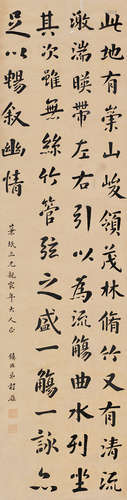 此地有崇山峻領茂林脩竹又有清流
激湍暎帶左右引以為流觴曲水列坐
其次雖無絲竹管弦之盛一觴一詠亦
足以暢叙幽情
三兄親家年大人正
弟